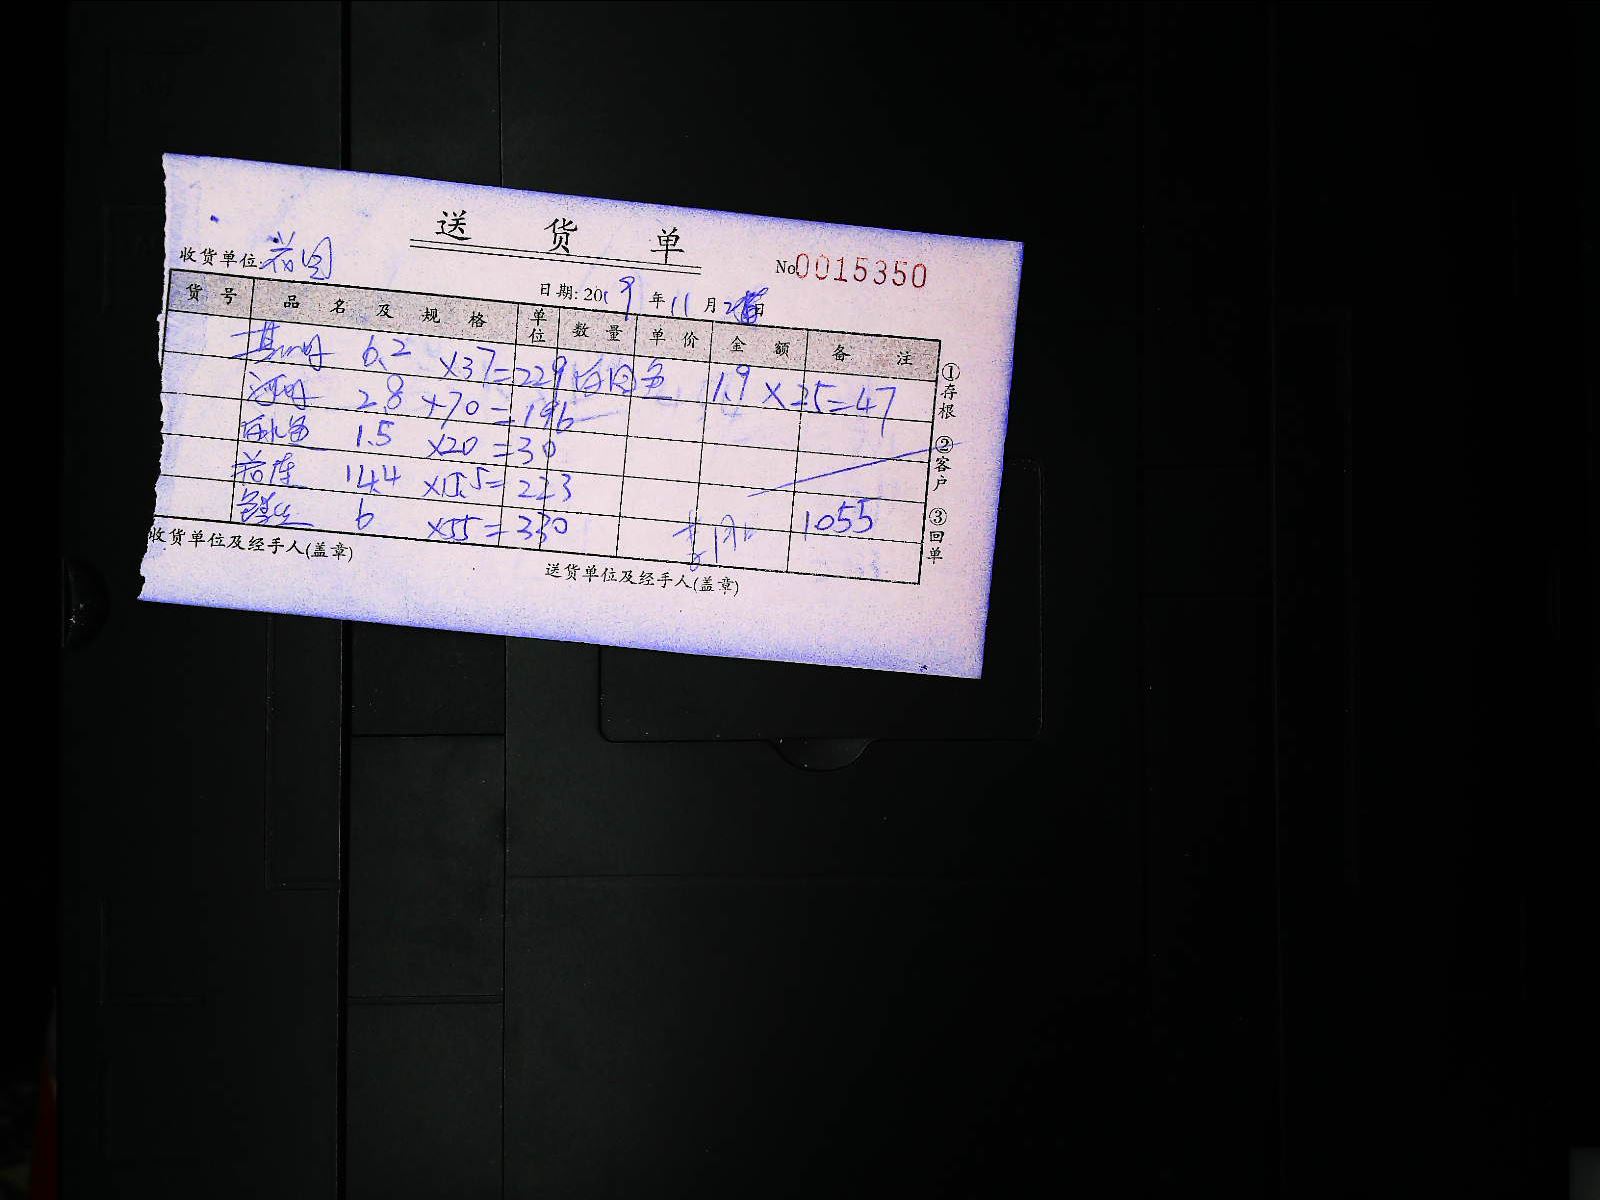 送 货 单
收货单位:花园
No0015350
日期:2019年11月2日
货号 品名及规格 单位 数量 单价 金额 备注
6.2 ×37=229 1.9×25=47
2.8 ×70=196
1.5 ×20=30
14.4 ×15.5=223
6 ×55=330 1055
收货单位及经手人(盖章)
送货单位及经手人(盖章)
①存根
②客户
③回单